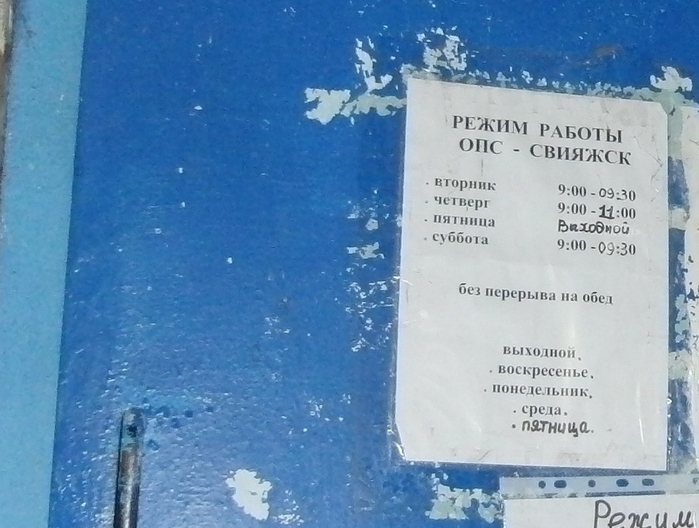 РЕЖИМ РАБОТЫ
ОПС - СВИЯЖСК
. вторник 9:00 - 09:30
. четверг 9:00 - 11:00
. пятница Выходной
. суббота 9:00 - 09:30
без перерыва на обед
выходной.
. воскресенье.
. понедельник.
. среда.
. пятница.
Режим